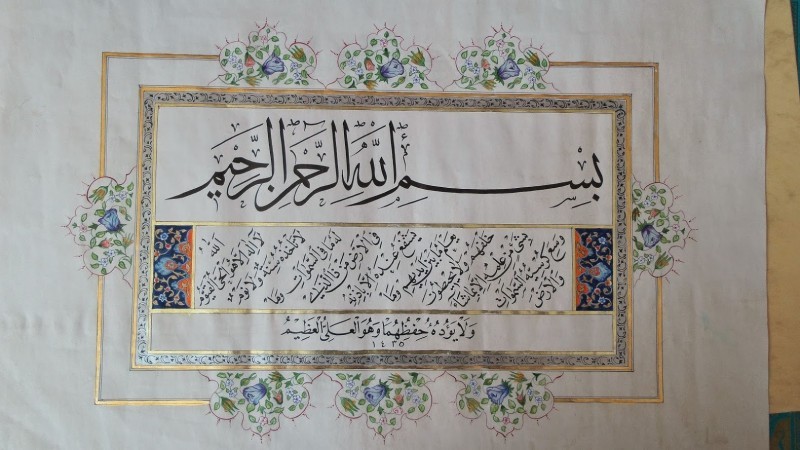 بِسْمِ اللَّهِ الرَّحْمَنِ الرَّحِيمِ
اللَّهُ
لَا إِلَهَ إِلَّا هُوَ الْحَيُّ الْقَيُّومُ
لَا تَأْخُذُهُ سِنَةٌ وَلَا نَوْمٌ
لَهُ مَا فِي السَّمَوَاتِ وَمَا
فِي الْأَرْضِ مَنْ ذَا الَّذِي
يَشْفَعُ عِنْدَهُ إِلَّا بِإِذْنِهِ
يَعْلَمُ مَا بَيْنَ أَيْدِيهِمْ وَمَا
خَلْفَهُمْ وَلَا يُحِيطُونَ
بِشَيْءٍ مِنْ عِلْمِهِ إِلَّا بِمَا شَاءَ
وَسِعَ كُرْسِيُّهُ السَّمَوَاتِ
وَالْأَرْضَ
وَلَا يَؤُدُهُ حِفْظُهُمَا وَهُوَ الْعَلِيُّ الْعَظِيمُ
١٤٣٥